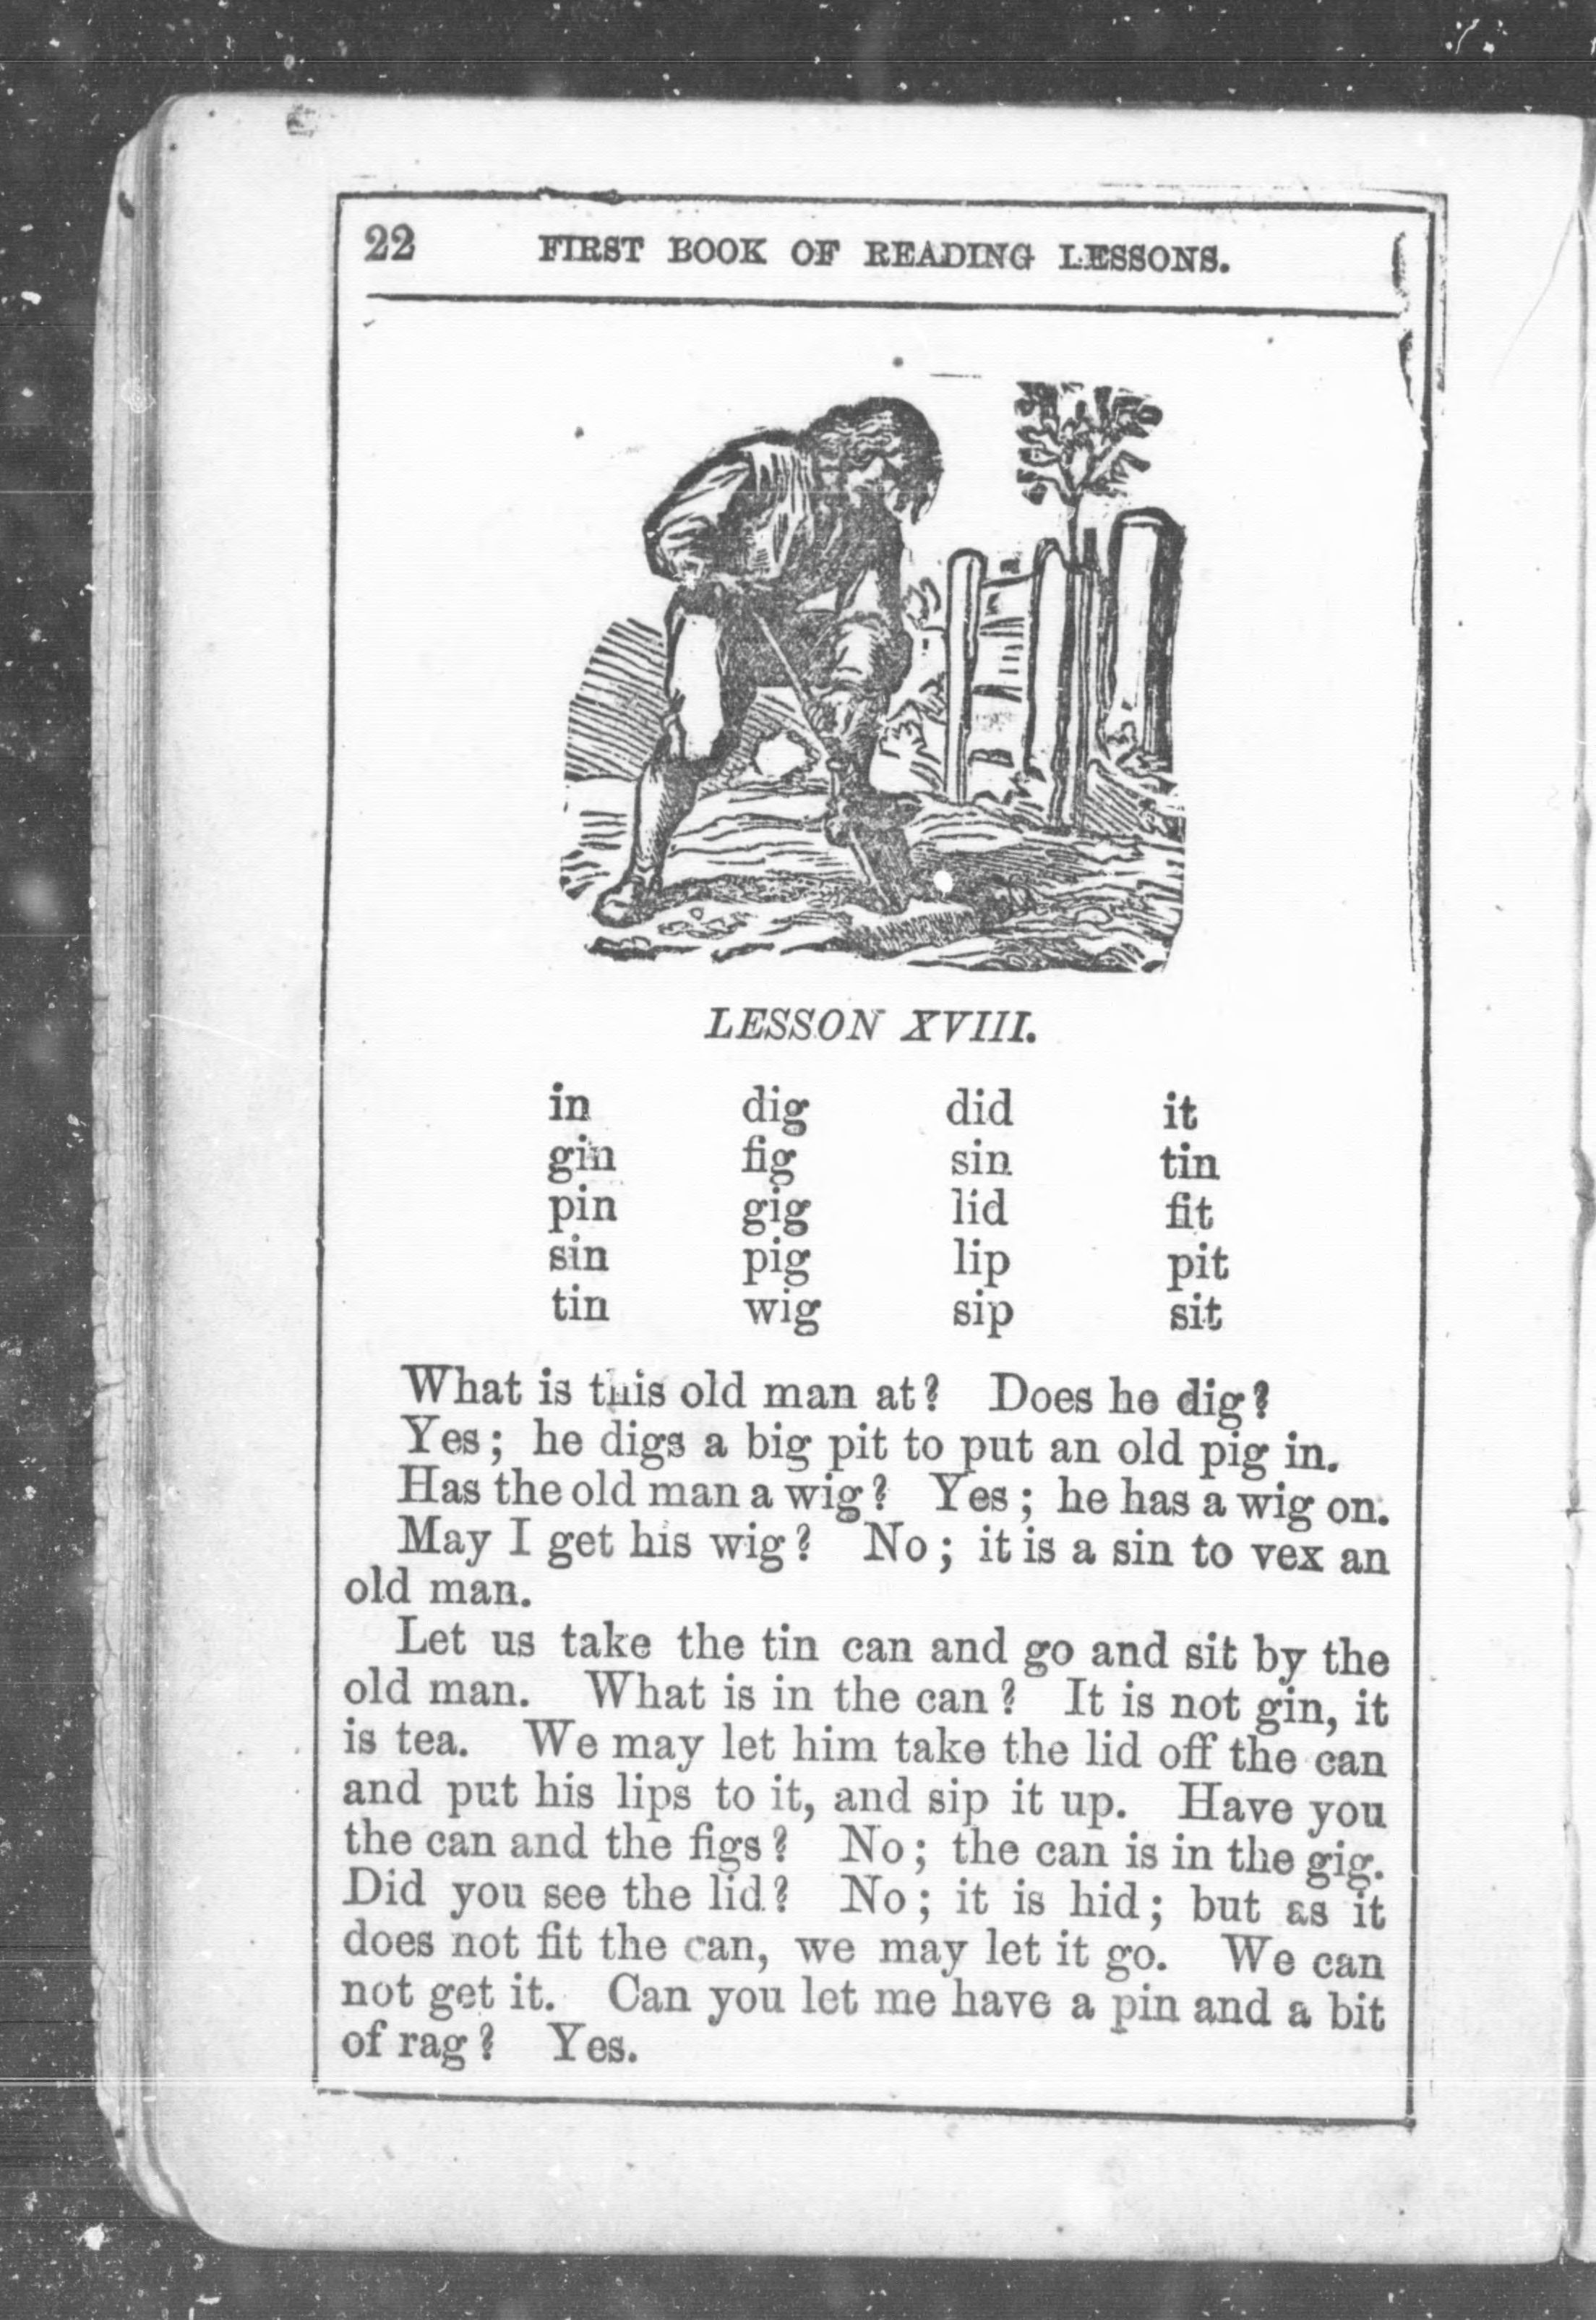 22 FIRST BOOK OF READING LESSONS.
LESSON XVIII.
in dig did it
gin fig sin tin
pin gig lid fit
sin pig lip pit
tin wig sip sit
What is this old man at? Does he dig?
Yes; he digs a big pit to put an old pig in.
Has the old man a wig? Yes; he has a wig on.
May I get his wig? No; it is a sin to vex an
old man.
Let us take the tin can and go and sit by the
old man. What is in the can? It is not gin, it
is tea. We may let him take the lid off the can
and put his lips to it, and sip it up. Have you
the can and the figs? No; the can is in the gig.
Did you see the lid? No; it is hid; but as it
does not fit the can, we may let it go. We can
not get it. Can you let me have a pin and a bit
of rag? Yes.